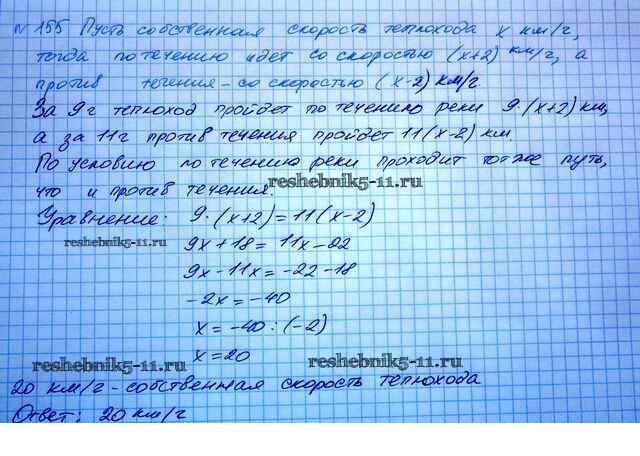 №155 Пусть собственная скорость теплохода х км/г,
тогда по течению идет со скоростью (х+2) км/г, а
против течения - со скоростью (х-2) км/г.
За 9г теплоход пройдет по течению реки 9·(х+2) км,
а за 11г против течения пройдет 11(х-2) км.
По условию по течению реки проходит тот же путь,
что и против течения.
reshebnik5-11.ru
Уравнение: 9·(х+2)=11(х-2)
reshebnik5-11.ru
9х+18=11х-22
9х-11х=-22-18
-2х=-40
х=-40:(-2)
х=20
reshebnik5-11.ru
reshebnik5-11.ru
20 км/г - собственная скорость теплохода
Ответ: 20 км/г